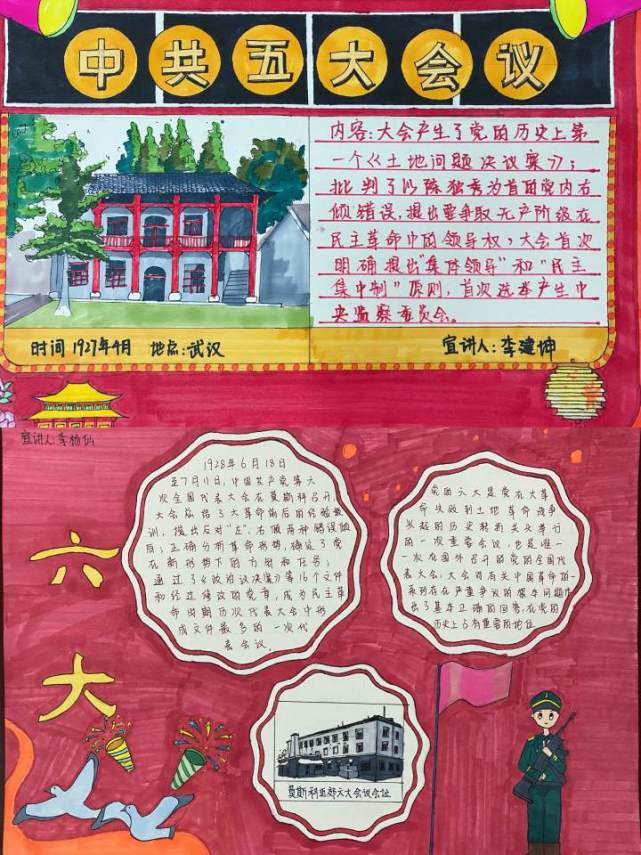 中共五大会议
内容:大会产生了党的历史上第
一个《土地问题决议案》;
批判了以陈独秀为首的党内右
倾错误,提出要争取无产阶级在
民主革命中的领导权,大会首次
明确提出“集体领导”和“民主
集中制”原则,首次选举产生中
央监察委员会。
时间1927年4月 地点:武汉
宣讲人:李建坤
宣讲人李杨仙
六大
1928年6月18日
至7月11日,中国共产党第六
次全国代表大会在莫斯科召开,
大会总结了大革命前后的经验教
训,提出反对“左”、右倾两种错误倾
向;正确分析革命形势,确定了党
在新形势下的方向和任务;
通过了《政治议决案》等16个文件
和经过修改的党章,成为民主革
命时期历次代表大会中形
成文件最多的一次代
表会议.
党的六大是党在大革
命失败到土地革命战争
兴起的历史转折关头举行
的一次重要会议,也是唯一
一次在国外召开的党的全国代
表大会.大会对有关中国革命的一
系列存在严重争议的根本问题作
出了基本正确的回答,在党的
历史上占有重要的地位
莫斯科五郊六大会议会址